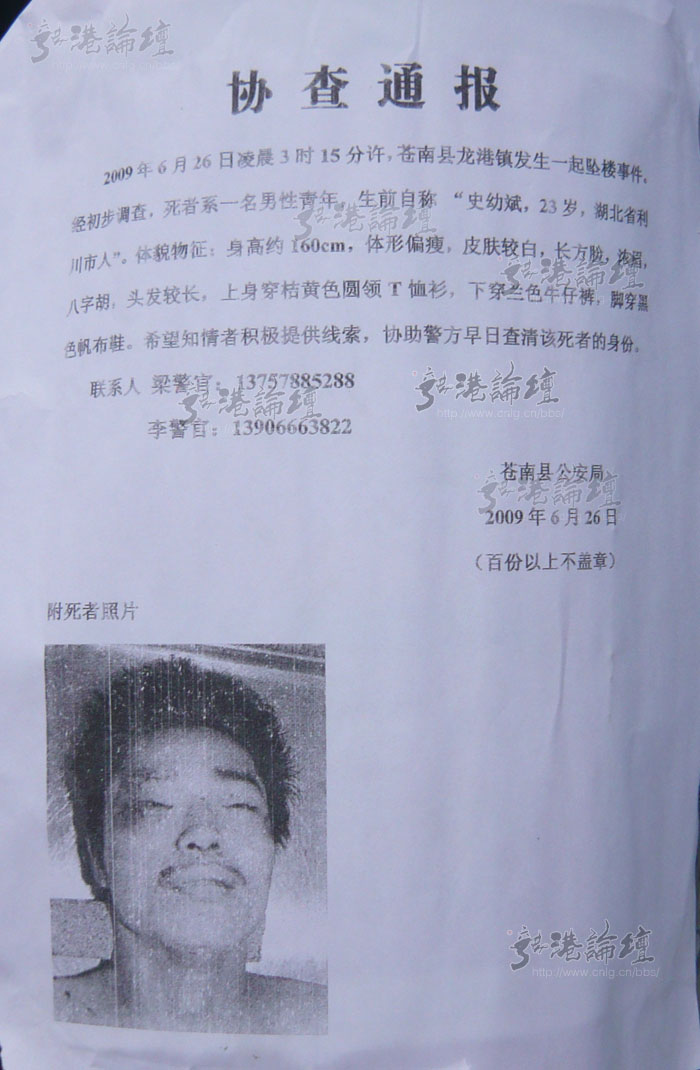 协查通报
2009年6月26日凌晨3时15分许，苍南县龙港镇发生一起坠楼事件。
经初步调查，死者系一名男性青年，生前自称“史幼斌，23岁，湖北省利
川市人”。体貌物征：身高约160cm，体形偏瘦，皮肤较白，长方脸，浓眉，
八字胡，头发较长，上身穿桔黄色圆领T恤衫，下穿兰色牛仔裤，脚穿黑
色帆布鞋。希望知情者积极提供线索，协助警方早日查清该死者的身份。
联系人 梁警官：13757885288
李警官：13906663822
苍南县公安局
2009年6月26日
（百份以上不盖章）
附死者照片
港論壇
http://www.cnlg.cn/bbs/